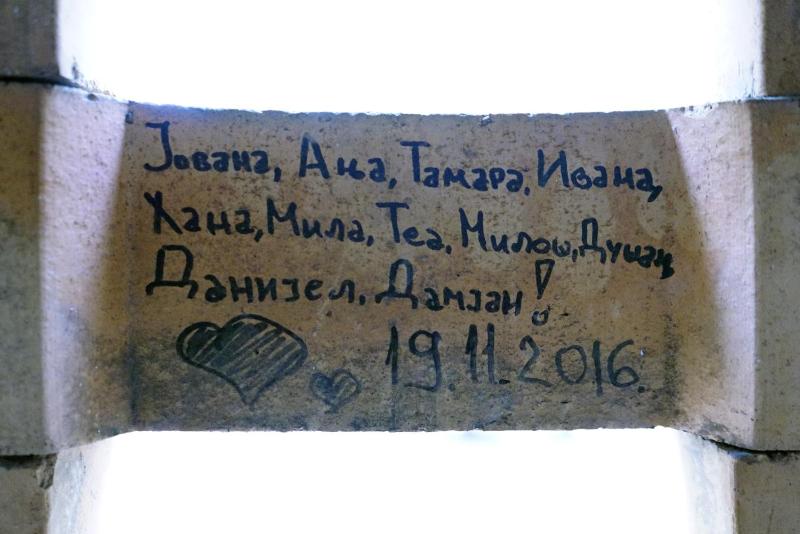 Јована, Ања, Тамара, Ивана,
Хана, Мила, Теа, Милош, Душан,
Данијел, Дамјан!
19.11.2016.